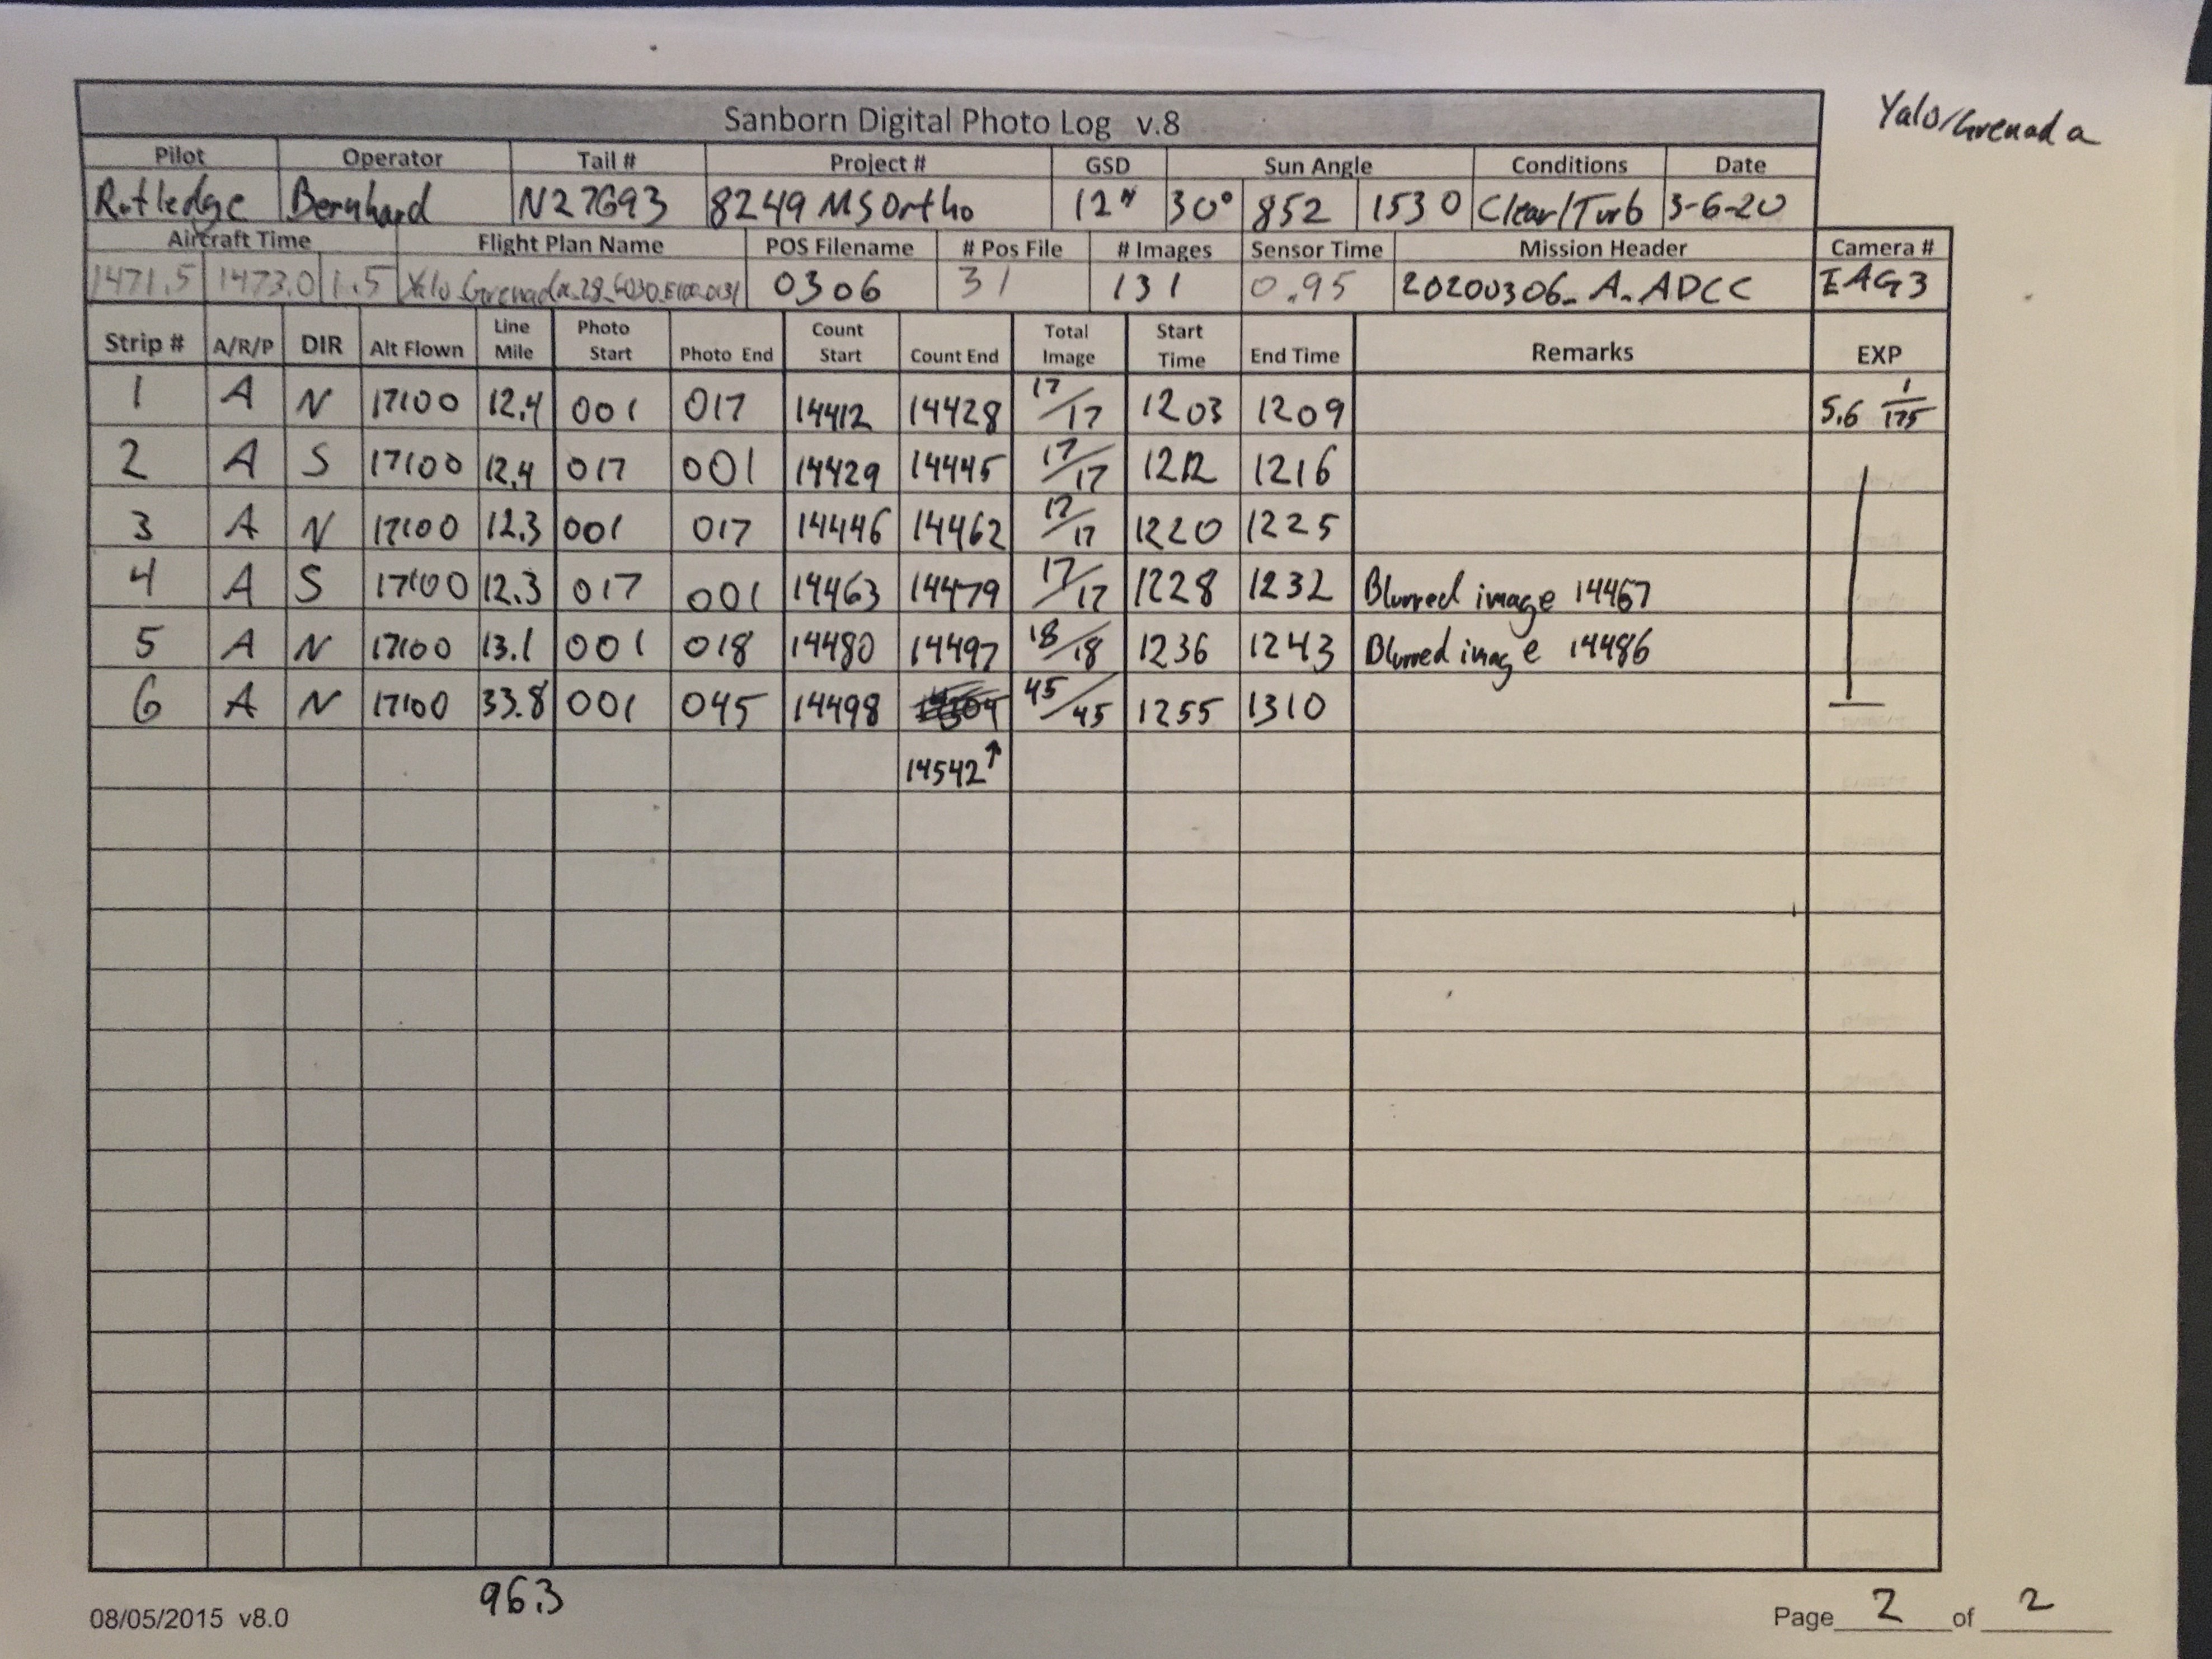 Yalo/Grenada
Sanborn Digital Photo Log v.8
Pilot Operator Tail # Project # GSD Sun Angle Conditions Date
Rutledge Bernhard N27693 8249 MS Ortho 12" 30° 852 1530 Clear/Turb 3-6-20
Aircraft Time Flight Plan Name POS Filename # Pos File # Images Sensor Time Mission Header Camera #
1471.5 1473.0 1.5 0306 31 131 0.95 20200306_A_ADCC EAG3
Strip # A/R/P DIR Alt Flown Line Mile Photo Start Photo End Count Start Count End Total Image Start Time End Time Remarks EXP
1 A N 17100 12.4 001 017 14412 14428 17/17 1203 1209 5.6 1/175
2 A S 17100 12.4 017 001 14429 14445 17/17 1212 1216
3 A N 17100 12.3 001 017 14446 14462 17/17 1220 1225
4 A S 17100 12.3 017 001 14463 14479 17/17 1228 1232 Blurred image 14467
5 A N 17100 13.1 001 018 14480 14497 18/18 1236 1243 Blurred image 14486
6 A N 17100 33.8 001 045 14498 45/45 1255 1310
14542↑
96.3
08/05/2015 v8.0 Page 2 of 2